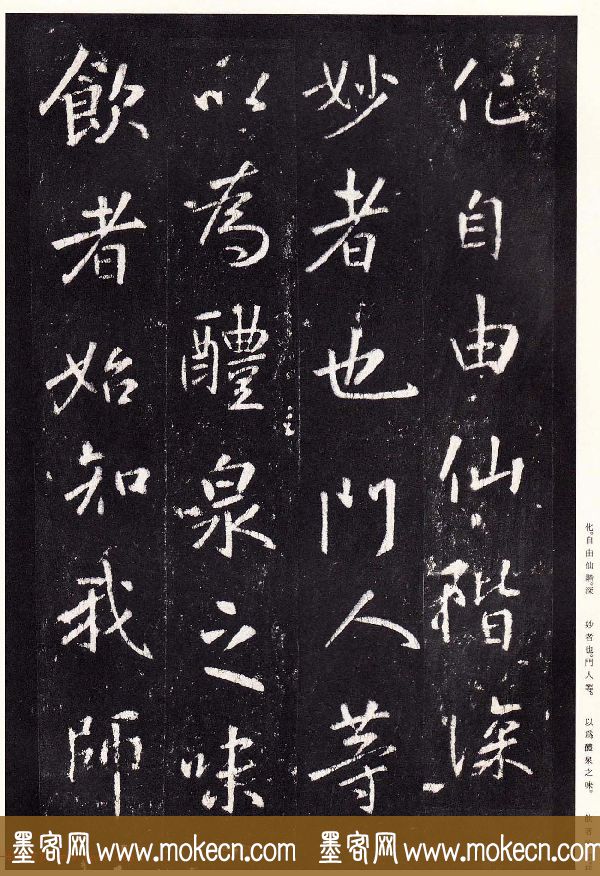 化自由仙階深
妙者也門人等
以為醴泉之味
飲者始知我師
化。自由仙階。深
妙者也。門人等。
以爲醴泉之味。
墨客网 www.mokecn.com 墨客网 www.mokecn.com